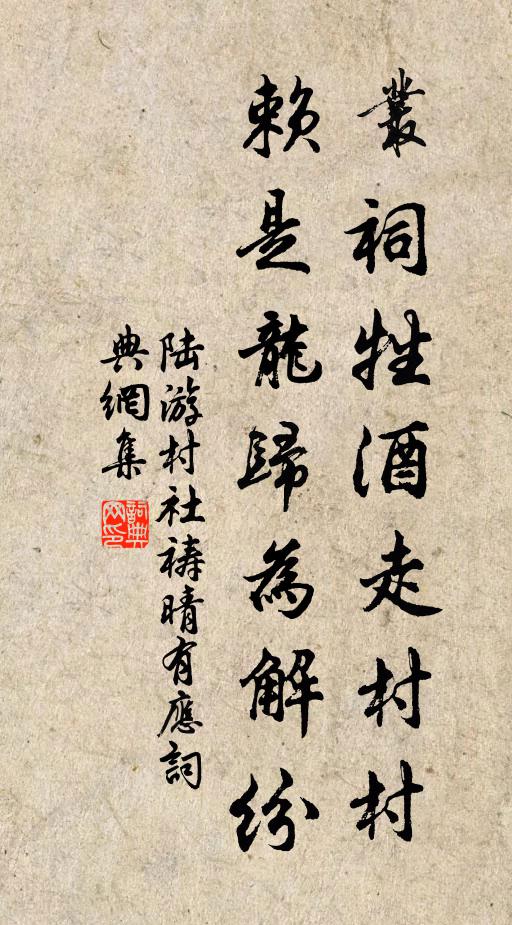 叢祠牲酒走村村
賴是龍歸為解紛
陆游村社祷晴有應詞
典網集
詞典网印